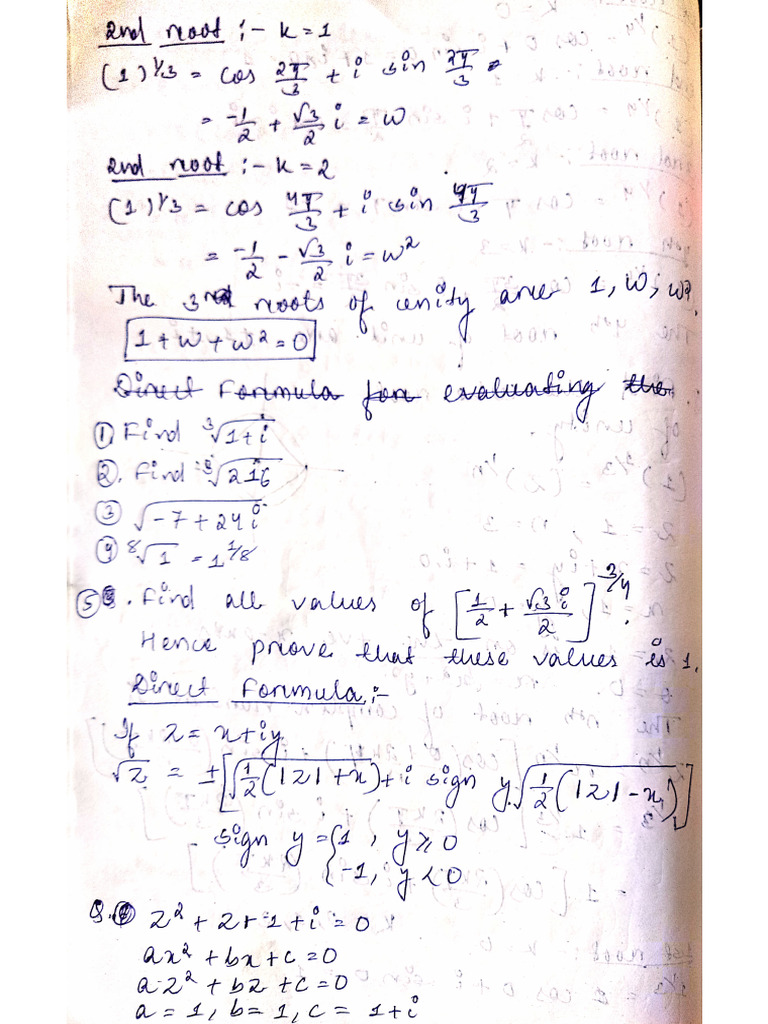 2nd root :- k=1
(1)^1/3 = cos 2π/3 + i sin 2π/3
= -1/2 + √3/2 i = w
2nd root :- k=2
(1)^1/3 = cos 4π/3 + i sin 4π/3
= -1/2 - √3/2 i = w²
The 3rd roots of unity are 1, w, w².
1+w+w²=0
Direct Formula for evaluating the
① Find ³√1+i
②. Find √216
③ √-7+24i
④ ⁸√1 = 1^1/8
⑤. Find all values of [1/2 + √3i/2]^3/4.
Hence prove that these values is 1.
Direct Formula :-
If z = x+iy
√z = ±[√1/2(|z|+x) + i sign y √1/2(|z|-x)]
sign y = {1, y≥0
{-1, y<0
Q. z²+z+1+i=0
ax²+bx+c=0
az²+bz+c=0
a=1, b=1, c= 1+i